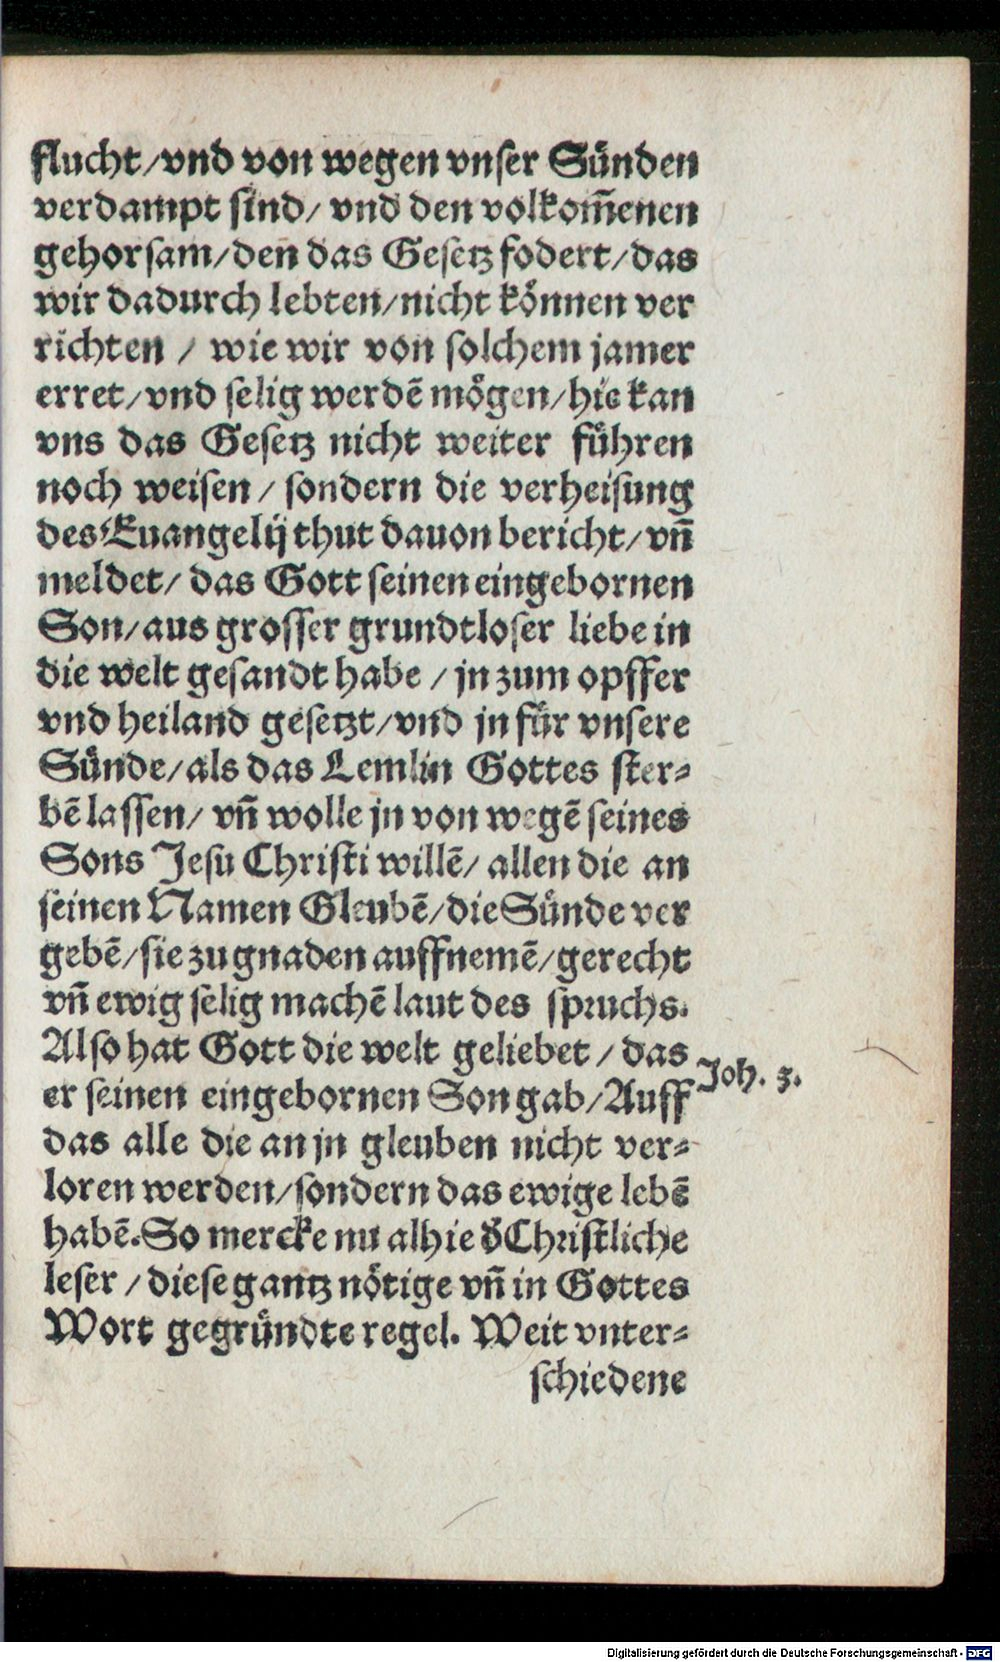 flucht/vnd von wegen vnser Sünden
verdampt sind/ vnd den volkom̃enen
gehorsam/den das Gesetz fodert/das
wir dadurch lebten/nicht können ver
richten / wie wir von solchem jamer
erret/vnd selig werdẽ mögen/hie kan
vns das Gesetz nicht weiter führen
noch weisen / sondern die verheisung
des Euangelij thut dauon bericht/ vñ
meldet/ das Gott seinen eingebornen
Son/aus grosser grundtloser liebe in
die welt gesandt habe / jn zum opffer
vnd heiland gesetzt/vnd jn für vnsere
Sünde/als das Lemlin Gottes ster-
bẽ lassen/ vñ wolle jn von wegẽ seines
Sons Jesu Christi willẽ/ allen die an
seinen Namen Gleubẽ/die Sünde ver
gebẽ/sie zu gnaden auffnemẽ/gerecht
vñ ewig selig machẽ laut des spruchs.
Also hat Gott die welt geliebet / das
Joh. 3.
er seinen eingebornen Son gab/Auff
das alle die an jn gleuben nicht ver-
loren werden/sondern das ewige lebẽ
habẽ. So mercke nu alhie d̾ Christliche
leser / diese gantz nötige vñ in Gottes
Wort gegründte regel. Weit vnter-
schiedene
Digitalisierung gefördert durch die Deutsche Forschungsgemeinschaft - DFG